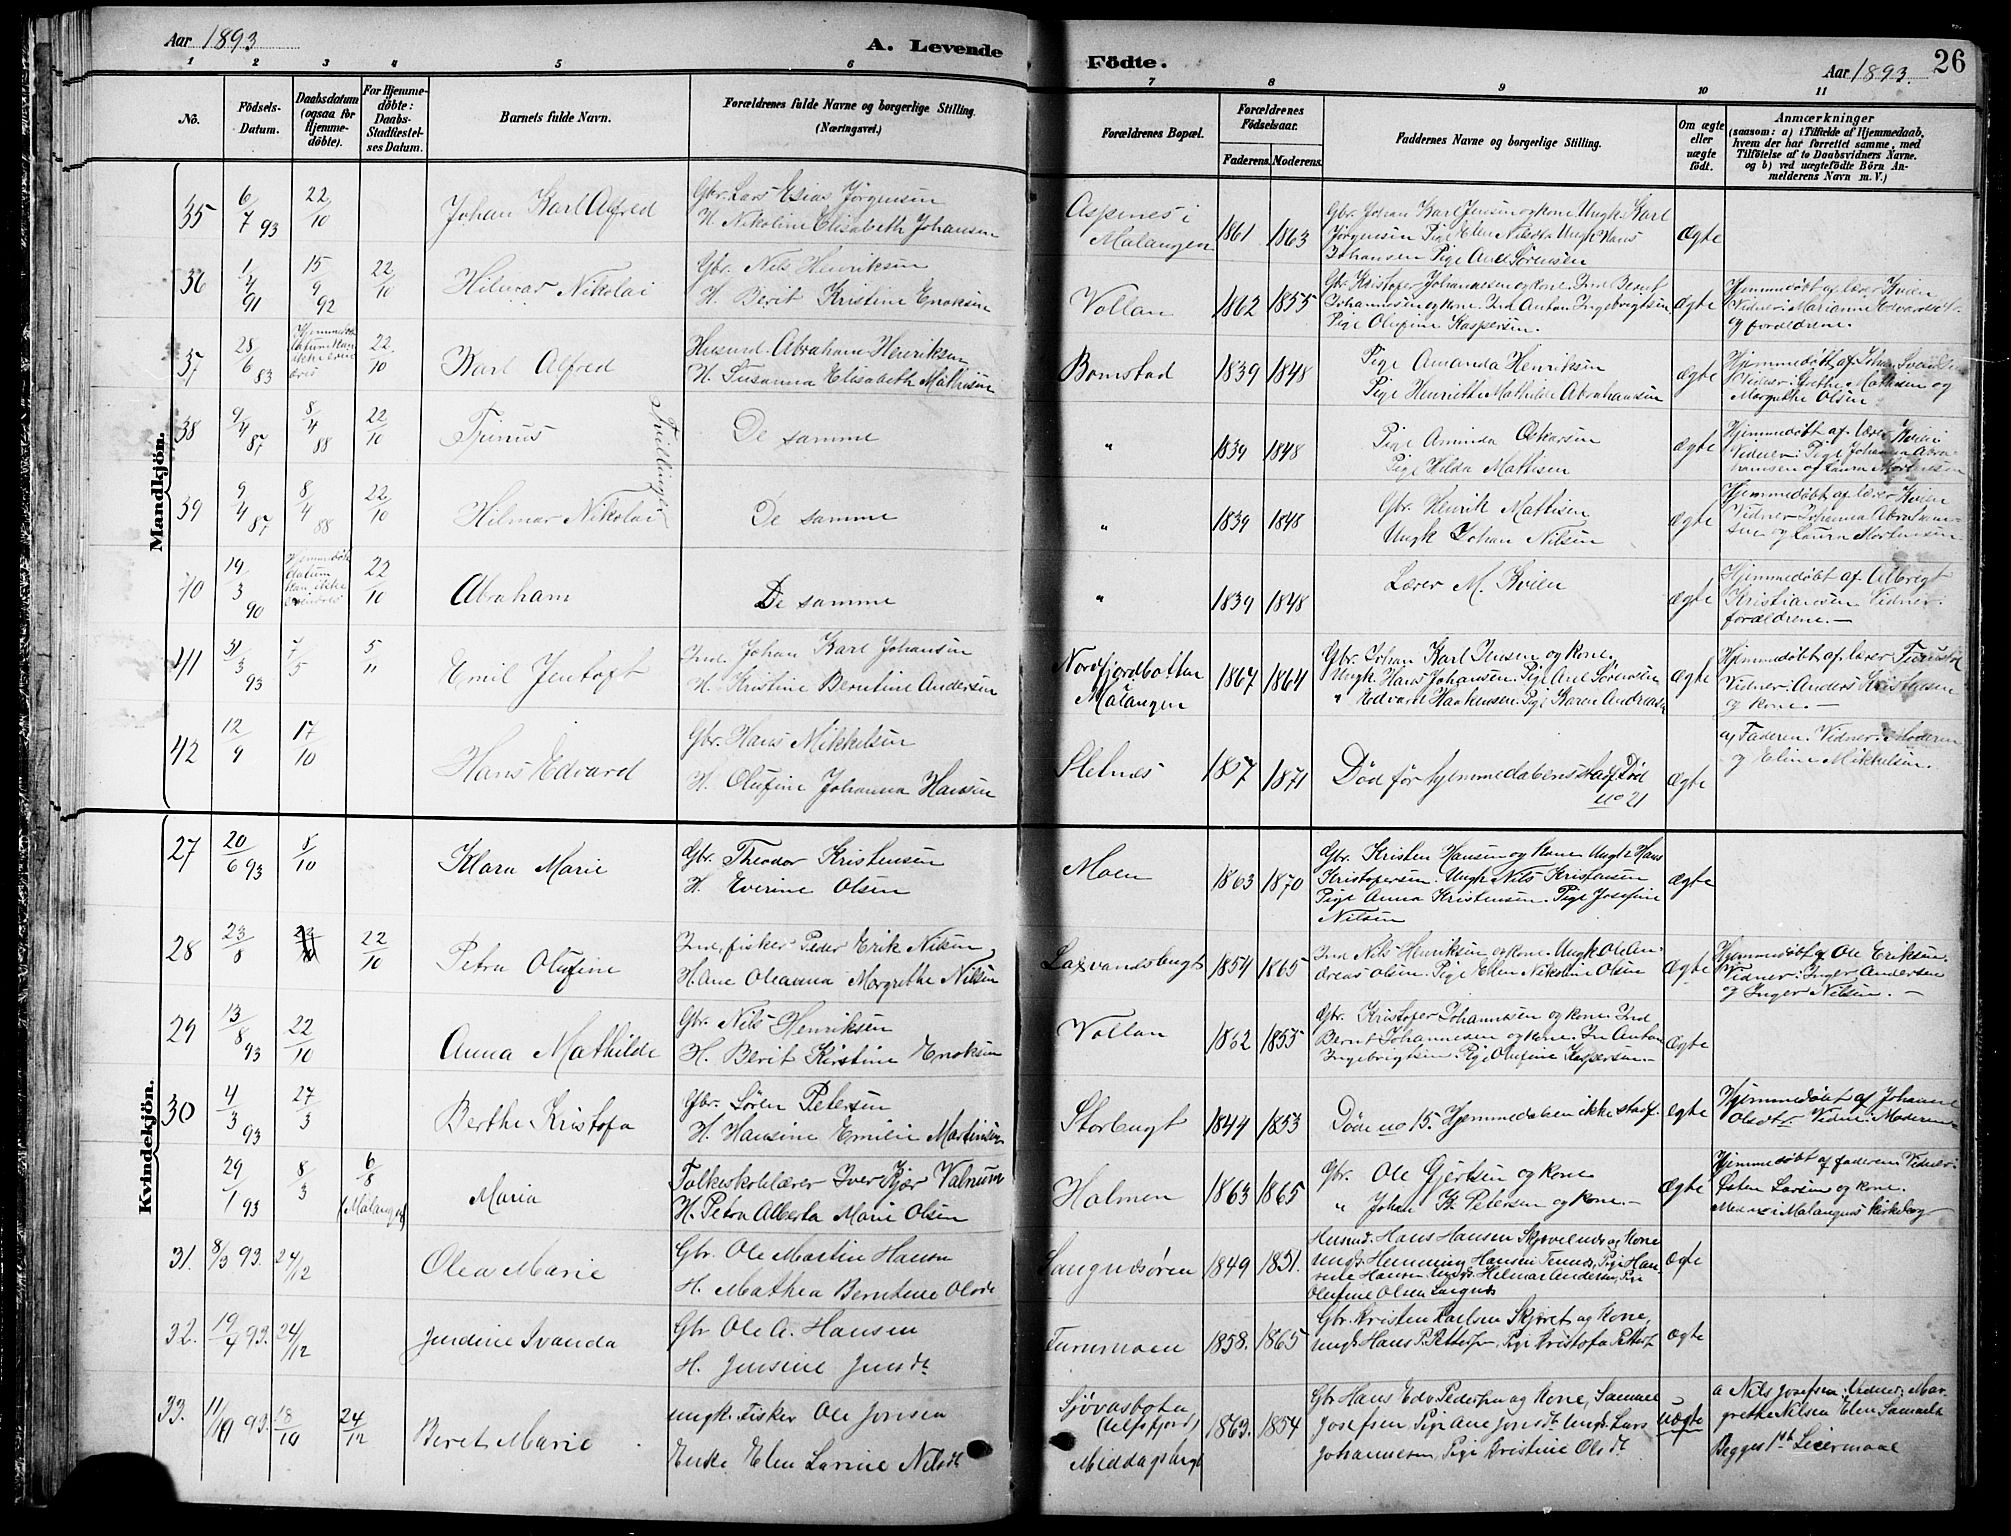 Aar 1893
A. Levende
Födte.
Aar 1893.
26
1 2 3 4 5 6 7 8 9 10 11
No.
Födsels-Datum.
Daabsdatum (ogsaa for Hjemme-döbte).
For Hjemme-döbte: Daabs-Stadfæstel-ses Datum.
Barnets fulde Navn.
Forældrenes fulde Navne og borgerlige Stilling. (Næringsvei.)
Forældrenes Bopæl.
Forældrenes Födselsaar.
Faderens. Moderens.
Faddernes Navne og borgerlige Stilling.
Om ægte eller uægte födt.
Anmærkninger
(saasom: a) i Tilfælde af Hjemmedaab,
hvem der har forrettet samme, med
Tilföielse af to Daabsvidners Navne.
og b) ved uægtefödte Börn An-
melderens Navn m. V.)
Mandkjön.
35 6/7 93 22/10 Johan Karl Alfred
Gbr. Lars Esias Jørgensen
H. Nikoline Elisabeth Johansen
Aspenes i
Malangen
1861 1863
Gbr. Johan Karl Jensen og kone Ungk. Karl
Jørgensen Pige Elen Nilsdtr Ungk Hans
Johansen Pige Ane Sørensen
ægte
36 1/4 91 15/9 92 22/10 Hilmar Nikolai
Gbr. Nils Henriksen
H. Berit Kristine Enoksen
Vollan 1862 1855
Gbr Kristofer Johannesen og kone Ind Bernt
Johannesen og kone. Ind Anton Ingebrigtsen
Pige Olufine Kaspersen.
ægte
Hjemmedøbt af lærer Kvien
Vidner: Marianne
og forældrene.
37 28/6 83 22/10 Karl Alfred
Husmd. Abraham Henriksen
H. Susanna Elisabeth Mathisen
Bomstad 1839 1848
Pige Amanda Henriksen
Pige Henriette Mathilde Abrahamsen
ægte
Hjemmedøbt af Johan
Vidner: Grethe Mathisen og
Margrethe Olsen
38 9/4 87 8/4 88 22/10 Trinus
Tvillinger
De samme
" 1839 1848
Pige Aminda Oskarsen
Pige Hilda Mattisen
ægte
Hjemmedøbt af lærer Kvien
Vidner: Pige Johanna Abra-
hamsen og Laura Mortensen
39 9/4 87 8/4 88 22/10 Hilmar Nikolai
De samme
" 1839 1848
Gbr. Henrik Mattisen
Ungk Johan Nilsen
ægte
Hjemmedøbt af lærer Kvien
Vidner Johanna Abraham-
sen og Laura Mortensen
40 19/3 90 22/10 Abraham
De samme
" 1839 1848
Lærer M. Kvien
ægte
Hjemmedøbt af Albrigt
Kristiansen. Vidner.
forældrene.—
41 31/3 93 7/5 5/11 Emil Jentoft
Ind. Johan Karl Johansen
H. Kristine Berntine Andersen
Nordfjordbotten
Malangen
1867 1864
Gbr. Johan Karl Jensen og kone.
Ungk. Hans Johansen. Pige Ane Sørensen
" Edvard Haakensen. Pige Karen Andreasen
ægte
Hjemmedøbt af lærer
Vidner: Anders Kristensen
og kone.—
42 12/9 17/10 Hans Edvard
Gbr. Hans Mikkelsen
H. Olufine Johanna Hansen
Sletnes 1857 1871
Død før hjemmedabens stadf. Død
no 21
ægte
af Faderen. Vidner: Moderen
og Eline Mikkelsen.
Kvindekjön.
27 20/6 93 8/10 Klara Marie
Gbr. Theodor Kristensen
H. Everine Olsen
Moen 1863 1870
Gbr. Kristen Hansen og kone Ungk Hans
Kristofersen. Ungk Nils Kristensen
Pige Anna Kristensen. Pige Josefine
Nilsen
ægte
28 23/8 22/10 Petra Olufine
Ind fisker Peder Erik Nilsen
H. Ane Oleanna Margrethe Nilsen
Laxvandsbugt 1854 1865
Ind Nils Henriksen og kone. Ungk Ole An-
dreas Olsen. Pige Elen Nikoline Olsen
ægte
Hjemmedøbt af Ole Eriksen.
Vidner: Inger Andersen
og Inger Nilsen.—
29 13/8 93 22/10 Anna Mathilde
Gbr. Nils Henriksen
H. Berit Kirstine Enoksen
Vollan 1862 1855
Gbr. Kristofer Johannesen og kone. Ind
Bernt Johannesen og kone. Ind Anton
Ingebrigtsen. Pige Olufine Kaspersen.
ægte
30 4/3 93 27/3 Berthe Kristofa
Gbr. Søren Petersen
H. Hansine Emilie Martinsen
Storbugt 1844 1853
Døde no 15. Hjemmedaben ikke stadf.
ægte
Hjemmedøbt af Johanna
Olsdtr. Vidne: Moderen
29/1 93 8/3 6/8 (Malangen) Maria
Folkeskolelærer Iver Kjær Valnum
H. Petra Alberta Marie Olsen
Holmen 1863 1865
Gbr. Ole Gjertsen og kone
" Johan K. Petersen og kone.—
ægte
Hjemmedøbt af faderen Vidner:
Østen Larsen og kone.
Med no i Malangens Kirkebog
31. 8/3 93. 24/12 Olea Marie
Gbr. Ole Martin Hansen
H. Mathea Berntine Olsdt
Langnæsøren 1849 1851.
Husmd. Hans Hansen Skjovelnæs og Kone
ungk. Henning Hansen Tennæs, Pige Han-
sine Hansen, ungk. Hilmar Andersen, Pige
Olufine Olsen Langnæs
ægte
32. 19/4 93. 24/12 Jendine Ivanda
Gbr Ole A. Hansen
H. Jensine Jensdt
Furumoen 1858. 1865
Gbr. Kristen Karlsen Skjæret og Kone,
ungk. Hans P. Petters., Pige Kristofa Petters.
ægte
33. 11/9 93. 18/10 24/12 Beret Marie
ungk. Fisker Ole Jonsen
Enke Elen Larine Nilsdt
Sjøvasbotn
(Ulfsfjord)
Middagsbugt
1863. 1854
Gbr Hans Edv. Pedersen og Kone, Samuel
Josefsen, Pige Ane Jonsdt. Ungk. Lars
Johannesen, Pige Kristine Olsdt
uægte
a Nils Josefsen. Vidner: Mar-
grethe Nilsen Elen Samuels.
Begges 1ste Leiermaal